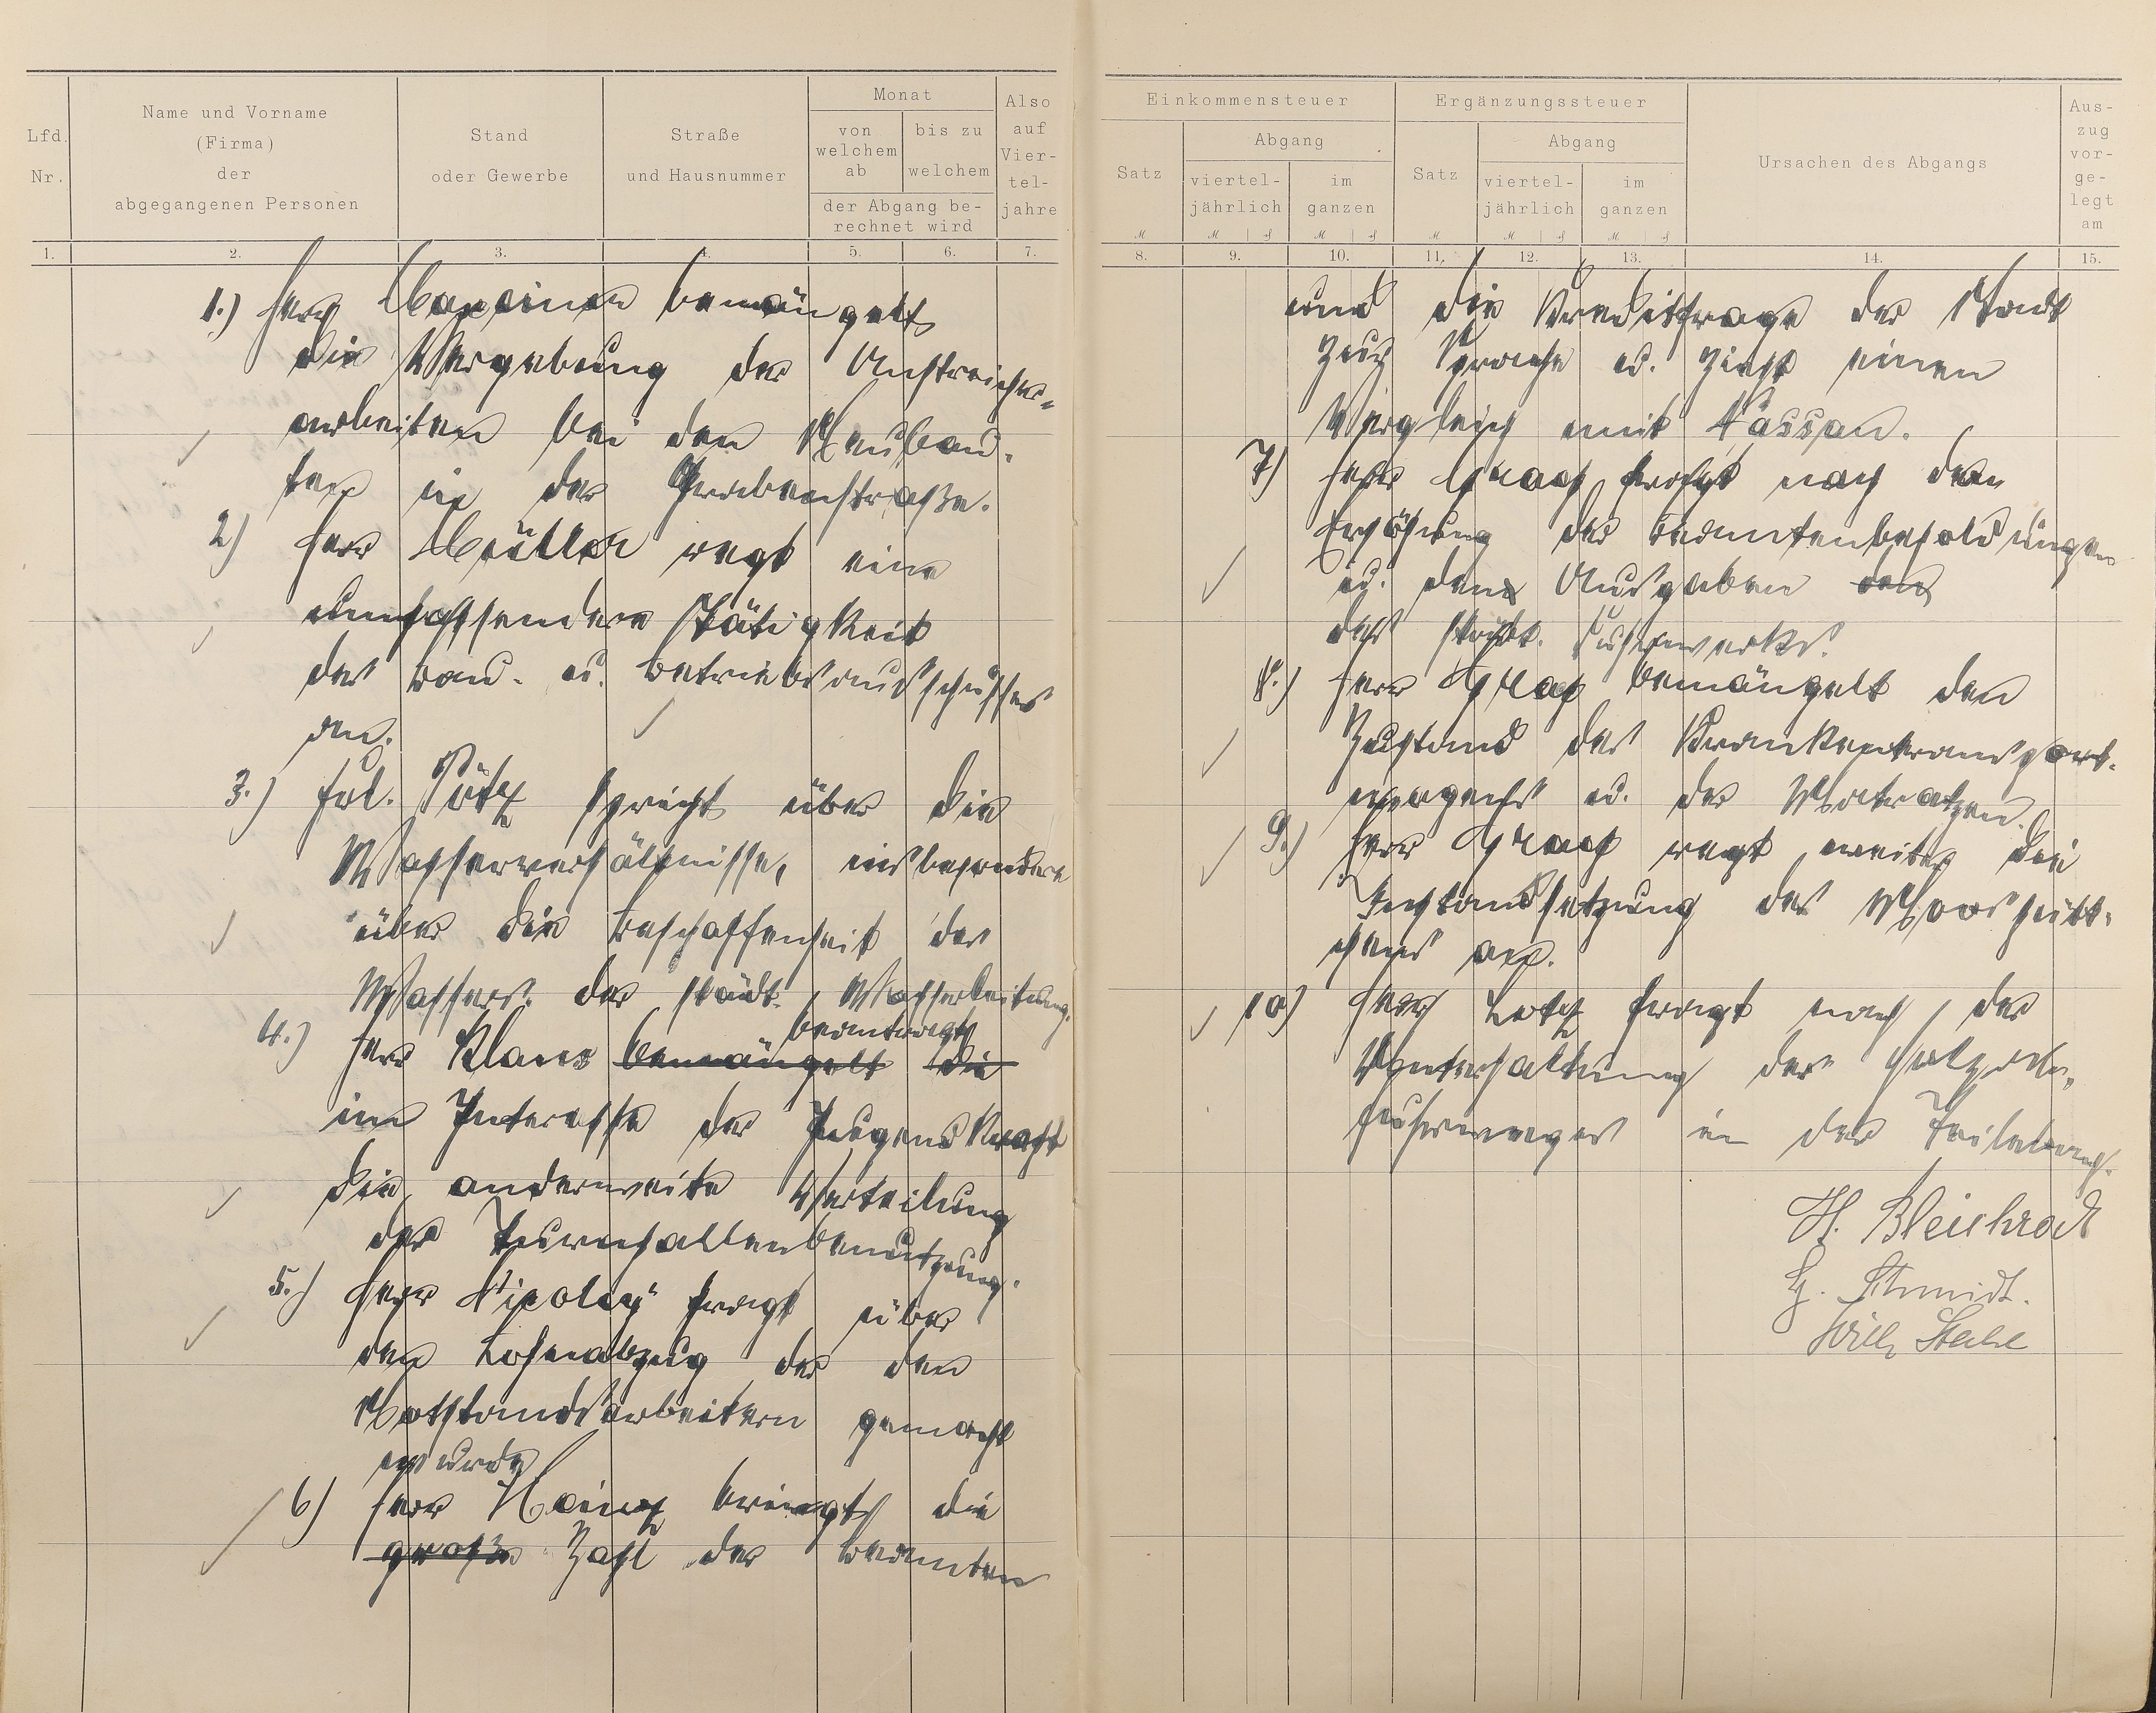 Lfd. Nr.
Name und Vorname (Firma) der abgegangenen Personen
Stand oder Gewerbe
Straße und Hausnummer
Monat
von welchem ab
bis zu welchem
der Abgang berechnet wird
Also auf Viertel-jahre
1. 2. 3. 4. 5. 6. 7.
1.) Herr bemängelt
die Vergebung der Anstreicher-
arbeiten bei den Neubau-
ten in der Grabenstraße.
2) Herr Müller regt eine
umfassendere Tätigkeit
des Bau- u. Betriebsausschusses
an.
3.) Frl. Pütz spricht über die
Wasserverhältnisse, insbesondere
über die Beschaffenheit des
Wassers der städt. Wasserleitung.
4.) Herr Klaus bemängelt die beantragt
im Interesse der Jugendkraft
die anderweite Verteilung
der Turnhallenbenutzung.
5.) Herr Nicolay fragt über
den Lohnabzug der den
Notstandsarbeitern gemacht
wurde
6) Herr Hainz bringt die
große Zahl der Beamten
Einkommensteuer
Satz
Abgang
viertel-jährlich
im ganzen
Ergänzungssteuer
Satz
Abgang
viertel-jährlich
im ganzen
Ursachen des Abgangs
Auszug vorgelegt am
8. 9. 10. 11. 12. 13. 14. 15.
und die Kreditfrage der Stadt
zur Sprache u. zieht einen
Vergleich mit Nassau.
7) Herr Graef frägt nach den
Erhöhung der Beamtenbesoldungen
u. den Ausgaben
des städt. Fuhrwerks.
8.) Herr Graef bemängelt den
Zustand des Krankentransport-
wagens u. der Matratzen.
9.) Herr Graef regt weiter die
Instandsetzung des
an.
10) Herr Lotz fragt nach der
Unterhaltung des Holzab-
fuhrweges in der
H. Bleichrodt
Schmidt.
Willy Stahl